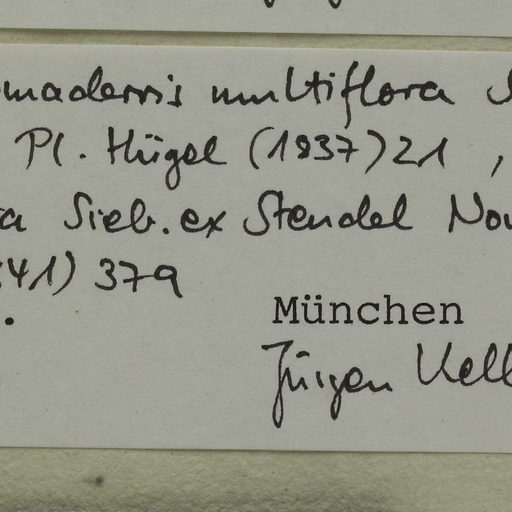 omaderris multiflora S
Pl. Hügel (1837) 21 ,
a Sieb. ex Steudel Nom
41) 379
.
München
Jürgen Kell